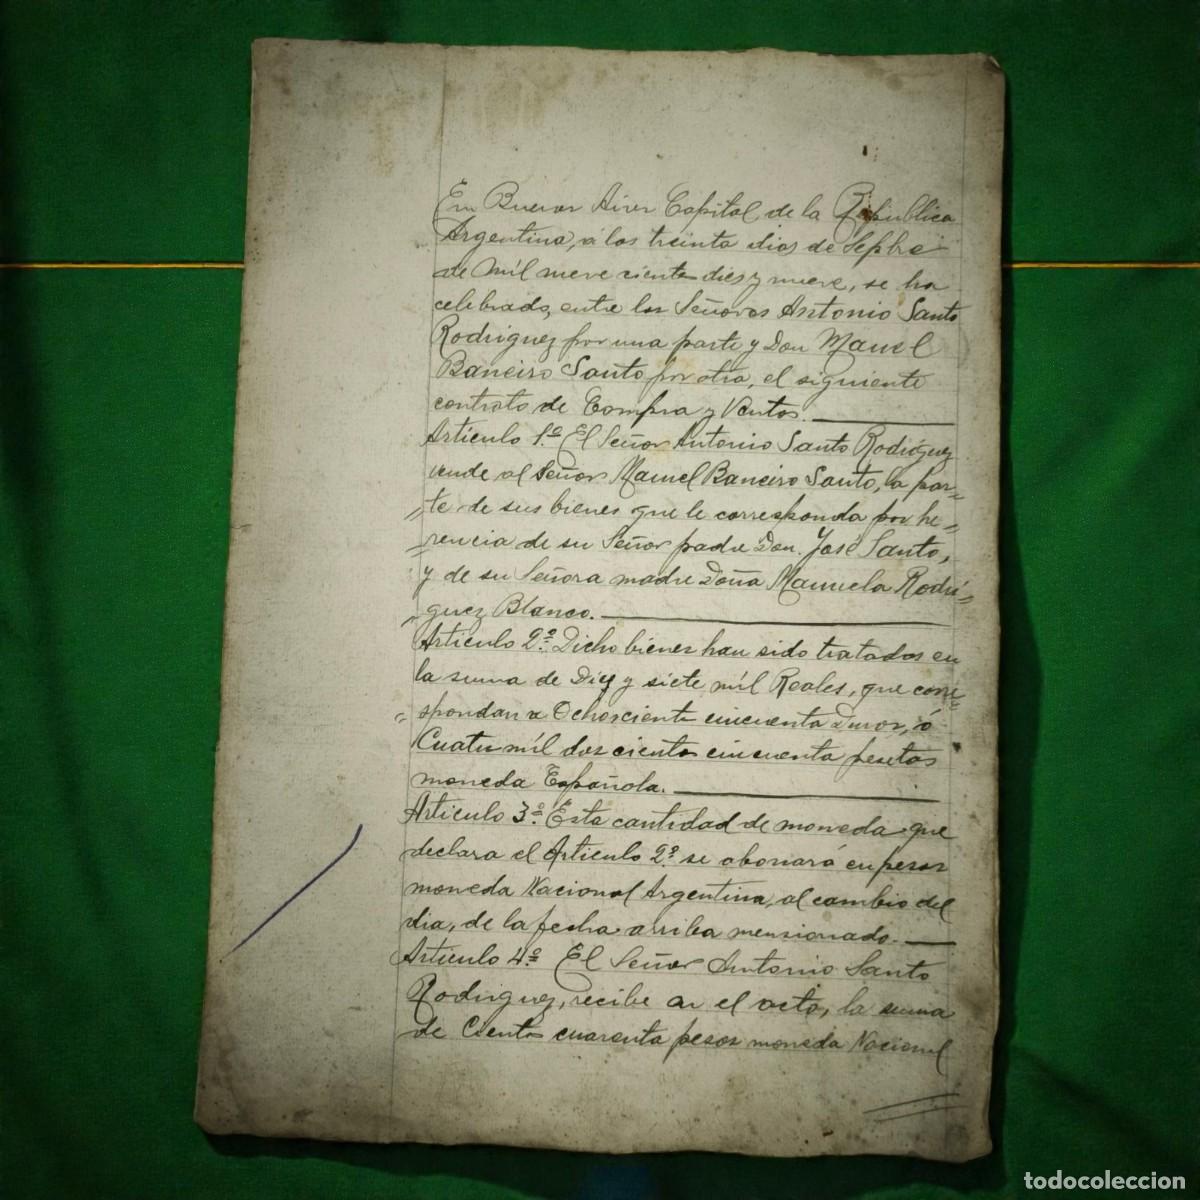 En Buenos Aires Capital de la República
Argentina, á los treinta dias de Sepbre
de Mil nueve ciento diez y nueve, se ha
celebrado, entre los Señores Antonio Santo
Rodriguez por una parte y Don Manuel
Baneiro Santo por otra, el siguiente
contrato de Compra y Ventas.
Articulo 1.º El Señor Antonio Santo Rodriguez
vende al señor Manuel Baneiro Santo, la par=
=te de sus bienes que le corresponda por he=
=rencia de su Señor padre Don. José Santo,
y de su Señora madre Doña Manuela Rodri=
=guez Blanco.
Articulo 2º. Dicho bienes han sido tratados en
la suma de Diez y siete mil Reales, que corre=
=spondan a Ochosciento cincuenta Duros, ó
Cuatro mil dos ciento cincuenta pesetas
moneda Española.
Articulo 3º. Esta cantidad de moneda que
declara el Articulo 2º. se abonará en pesos
moneda Nacional Argentina, al cambio del
dia, de la fecha arriba mensionado.
Articulo 4º. El Señor Antonio Santo
Rodriguez, recibe en el acto, la suma
de Ciento cuarenta pesos moneda Nacional
todocoleccion